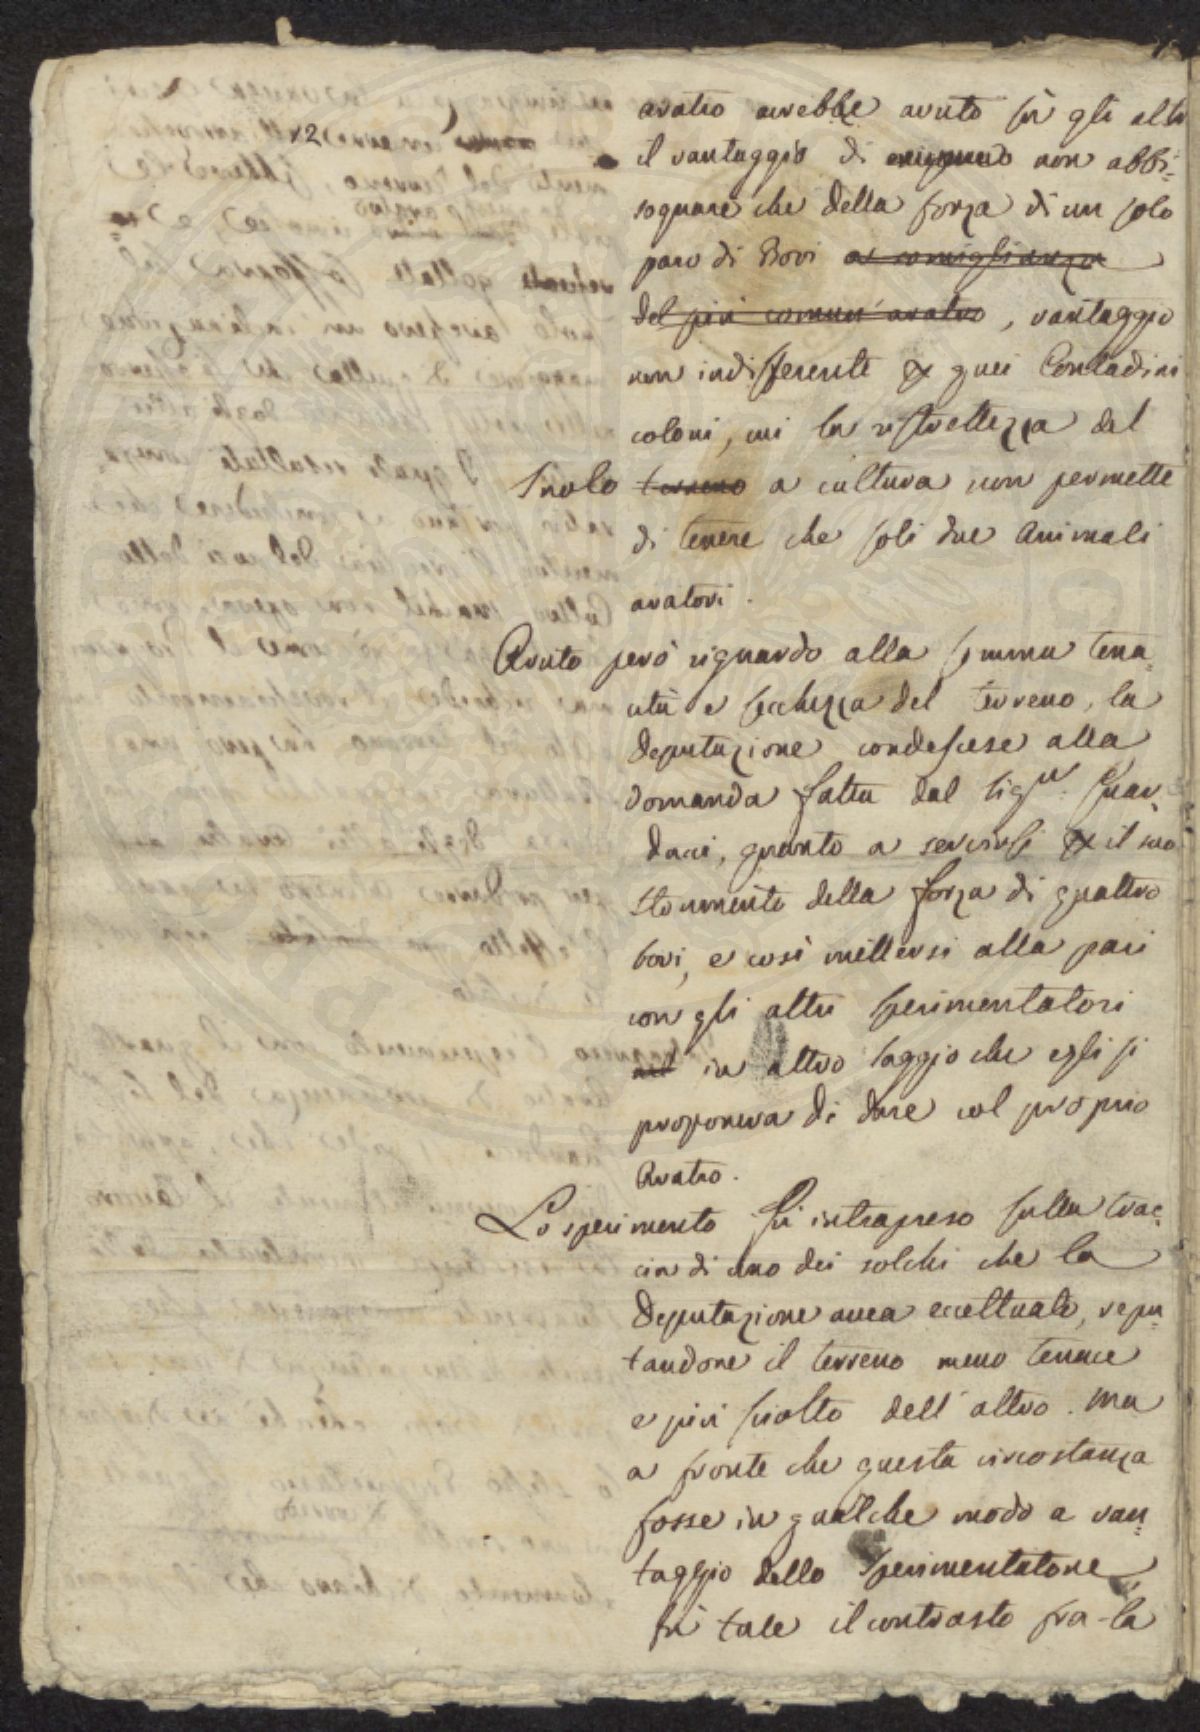 12
aratro avrebbe avuto su gli altri
il vantaggio di non abbi=
sognare che della forza di un solo
paro di Bovi a somiglianza
del più comun' aratro, vantaggio
non indifferente per quei Contadini
coloni, cui la ristrettezza del
Suolo terreno a cultura non permette
di tenere che soli due Animali
aratori.
Avuto però riguardo alla somma tena=
cità e secchezza del terreno, la
Deputazione condescese alla
domanda fatta dal Sig.re Guar=
ducci, quanto a servirsi per il suo
Stormento della forza di quattro
bovi, e così mettersi alla pari
con gli altri Sperimentatori
nel in altro saggio che egli si
proponeva di dare col proprio
Aratro.
Lo sperimento fu intrapreso sulla trac=
cia di uno dei solchi che la
Deputazione avea eccettuati, repu=
tandone il terreno meno tenace
e più sciolto dell'altro. Ma
a fronte che questa circostanza
fosse in qualche modo a van=
taggio dello Sperimentatore,
fu tale il contrasto fra la